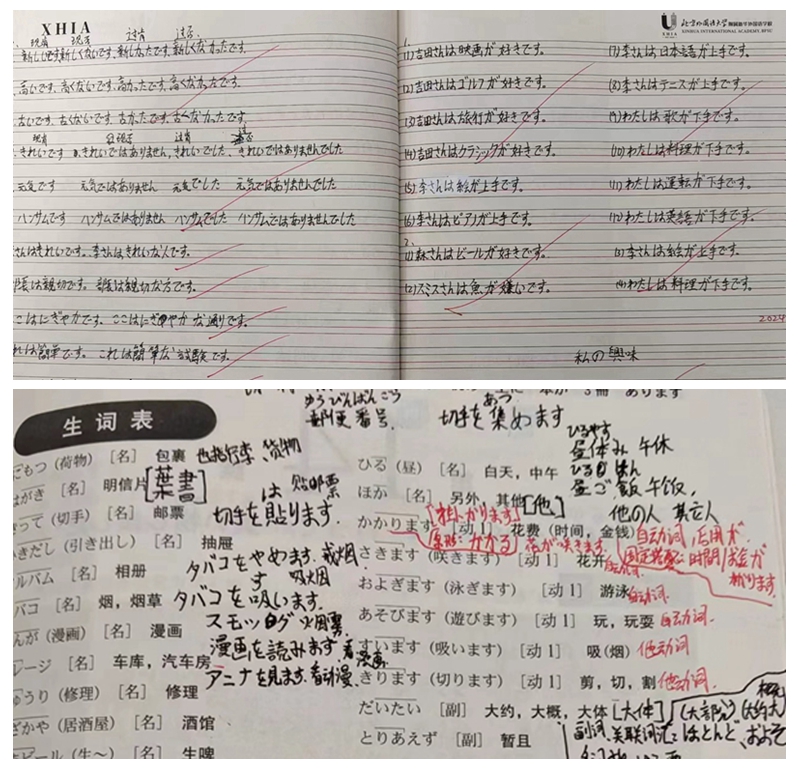 XHIA
现肯 现否 过肯 过否
新しいです新しくないです、新しかったです、新しくなかったです。
高いです、高くないです、高かったです、高くなかったです。
古いです、古くないです、古かったです、古くなかったです。
现肯 过肯
きれいです きれいではありません、きれいでした、きれいではありませんでした
元気です 元気ではありません 元気でした 元気ではありませんでした
ハンサムです ハンサムではありません ハンサムでした ハンサムではありませんでした
さんはきれいです。李さんはきれいな人です。
は親切です。部長は親切な方です。
こはにぎやかです、ここはにぎやかな通りです。
れは簡単です。これは簡単な試験です。
北京外国语大学
XINHUA INTERNATIONAL ACADEMY, BFSU
1.
(1)吉田さんは映画が好きです。
(2)吉田さんはゴルフが好きです。
(3)吉田さんは旅行が好きです。
(4)吉田さんはクラシックが好きです。
(5)李さんは絵が上手です。
(6)李さんはピアノが上手です。
2.
(1)森さんはビールが好きです。
(2)スミスさんは魚が嫌いです。
(7)李さんは日本語が上手です。
(8)李さんはテニスが上手です。
(9)わたしは歌が下手です。
(10)わたしは料理が下手です。
(11)わたしは運転が下手です。
(12)わたしは英語が下手です。
(3)李さんは絵が上手です。
(4)わたしは料理が下手です。
2024
私の興味
ゆうびんばんごう
郵便番号.
3冊 あります
あつ
切手を集めます
生词表
にもつ（荷物） [名] 包裹 也指行李、货物
はがき [名] 明信片 [葉書]
は 贴邮票
きって（切手） [名] 邮票 切手を貼ります.
きだし（引き出し） [名] 抽屉
タバコをやめます. 戒烟
ルバム [名] 相册
す 吸烟
バコ [名] 烟，烟草 タバコを吸います.
スモッグ 烟雾
んが（漫画） [名] 漫画 漫画を読みます 看漫画.
レージ [名] 车库，汽车房
アニナを見ます. 看动漫.
ゅうり（修理） [名] 修理
ざかや（居酒屋） [名] 酒馆
ビール（生～） [名] 生啤
ひるやす
昼休み 午休
ひる（昼） [名] 白天，中午
ひるご はん
昼ご飯 午饭，
ほか [名] 另外，其他 [他] 他の人 其它人
[掛かります]
かかります [动1] 花费（时间，金钱） 自动词，
原形：かかる 花が咲きます
時間/お金が
掛ります
さきます（咲きます） [动1] 花开 自动词.
およぎます（泳ぎます） [动1] 游泳 自动词.
あそびます（遊びます） [动1] 玩，玩耍 自动词.
すいます（吸います） [动1] 吸（烟） 他动词
きります（切ります） [动1] 剪，切，割 他动词.
だいたい [副] 大约，大概，大体 [大体] (大部分) (大约)
とりあえず [副] 暂且
副词 ほとんど、およそ